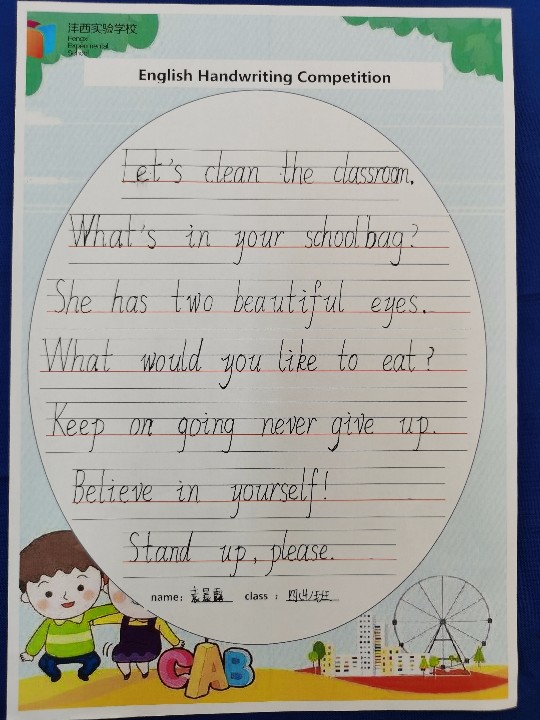 沣西实验学校
Fengxi
Experimental
School
English Handwriting Competition
Let's clean the classroom.
What's in your schoolbag?
She has two beautiful eyes.
What would you like to eat?
Keep on going never give up.
Believe in yourself!
Stand up, please.
name: class: 四(4)班
CAB